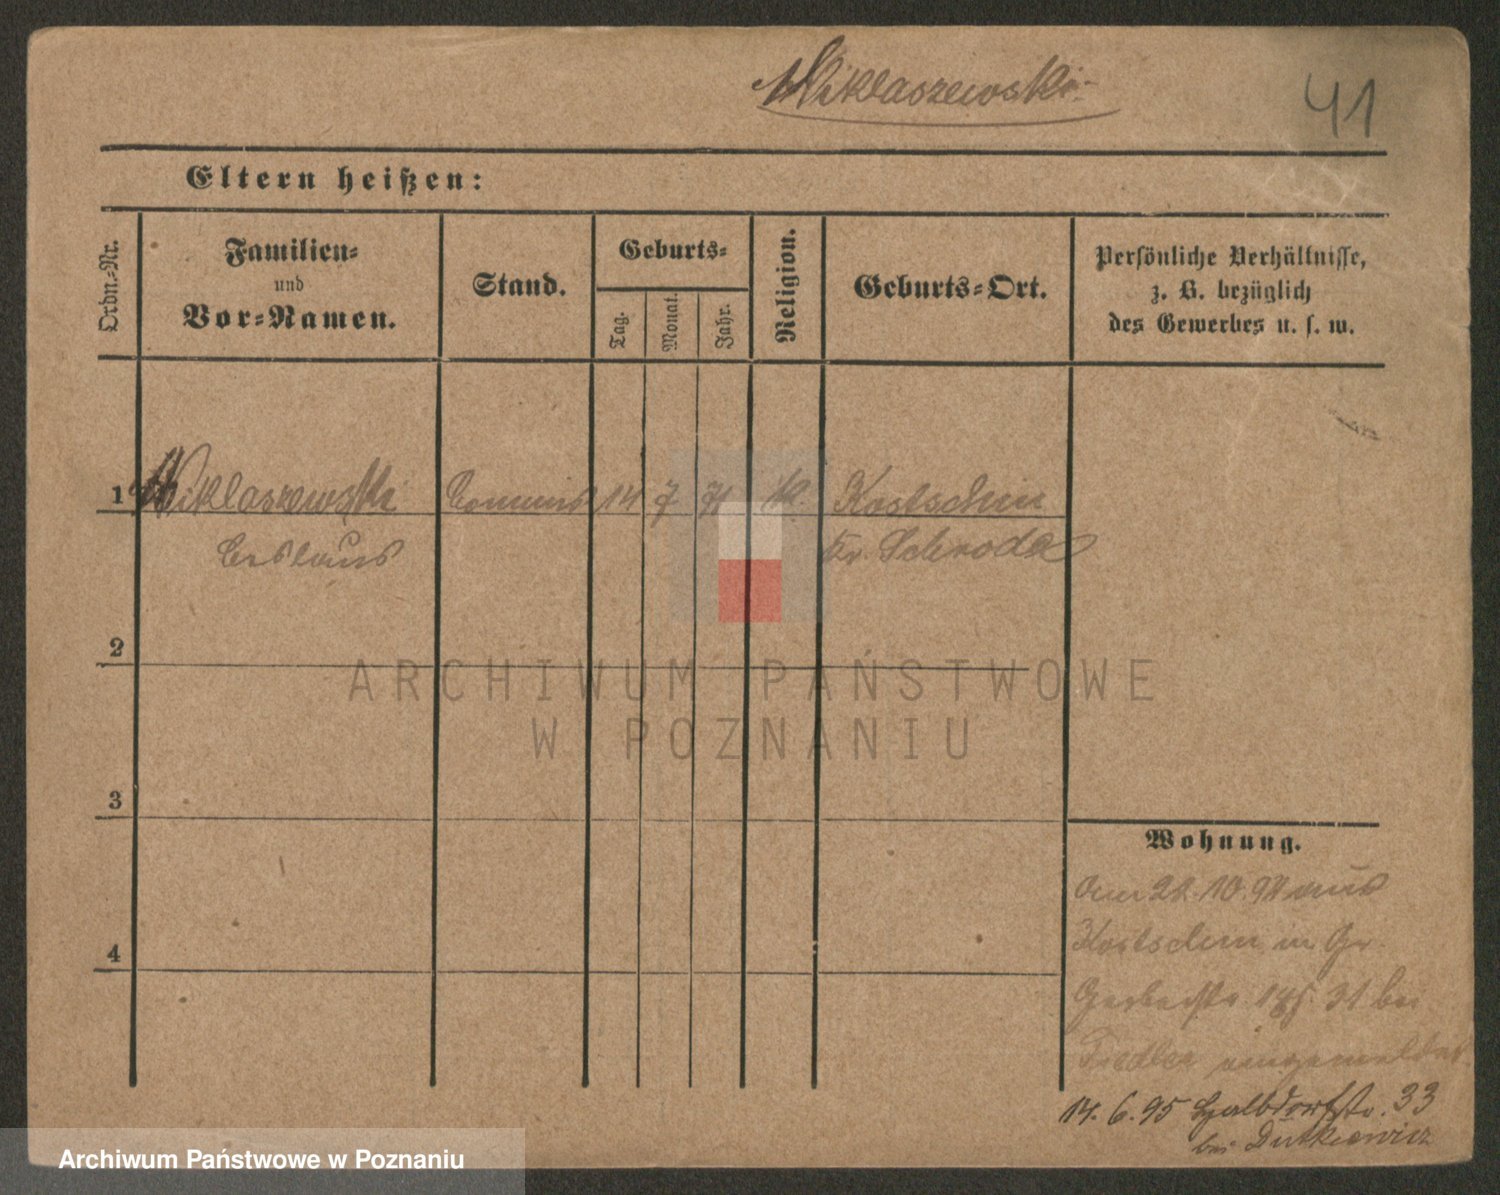 Miklaszewski
41
Eltern heißen:
Ordn.-Nr.
Familien-
und
Vor-Namen.
Stand.
Geburts-
Tag.
Monat.
Jahr.
Religion.
Geburts-Ort.
Persönliche Verhältnisse,
z. B. bezüglich
des Gewerbes u. s. w.
1 Miklaszewski Commis 14 7 71 k. Kostschin
Ceslaus Kr. Schroda
2
3
4
Wohnung.
Am 22.10.94 aus
Kostschin in Gr.
Gerberstr. 31 bei
Fiedler angemeldet
14. 6. 95 Halbdorfstr. 33
bei Dutkiewicz
ARCHIWUM PAŃSTWOWE
W POZNANIU
Archiwum Państwowe w Poznaniu